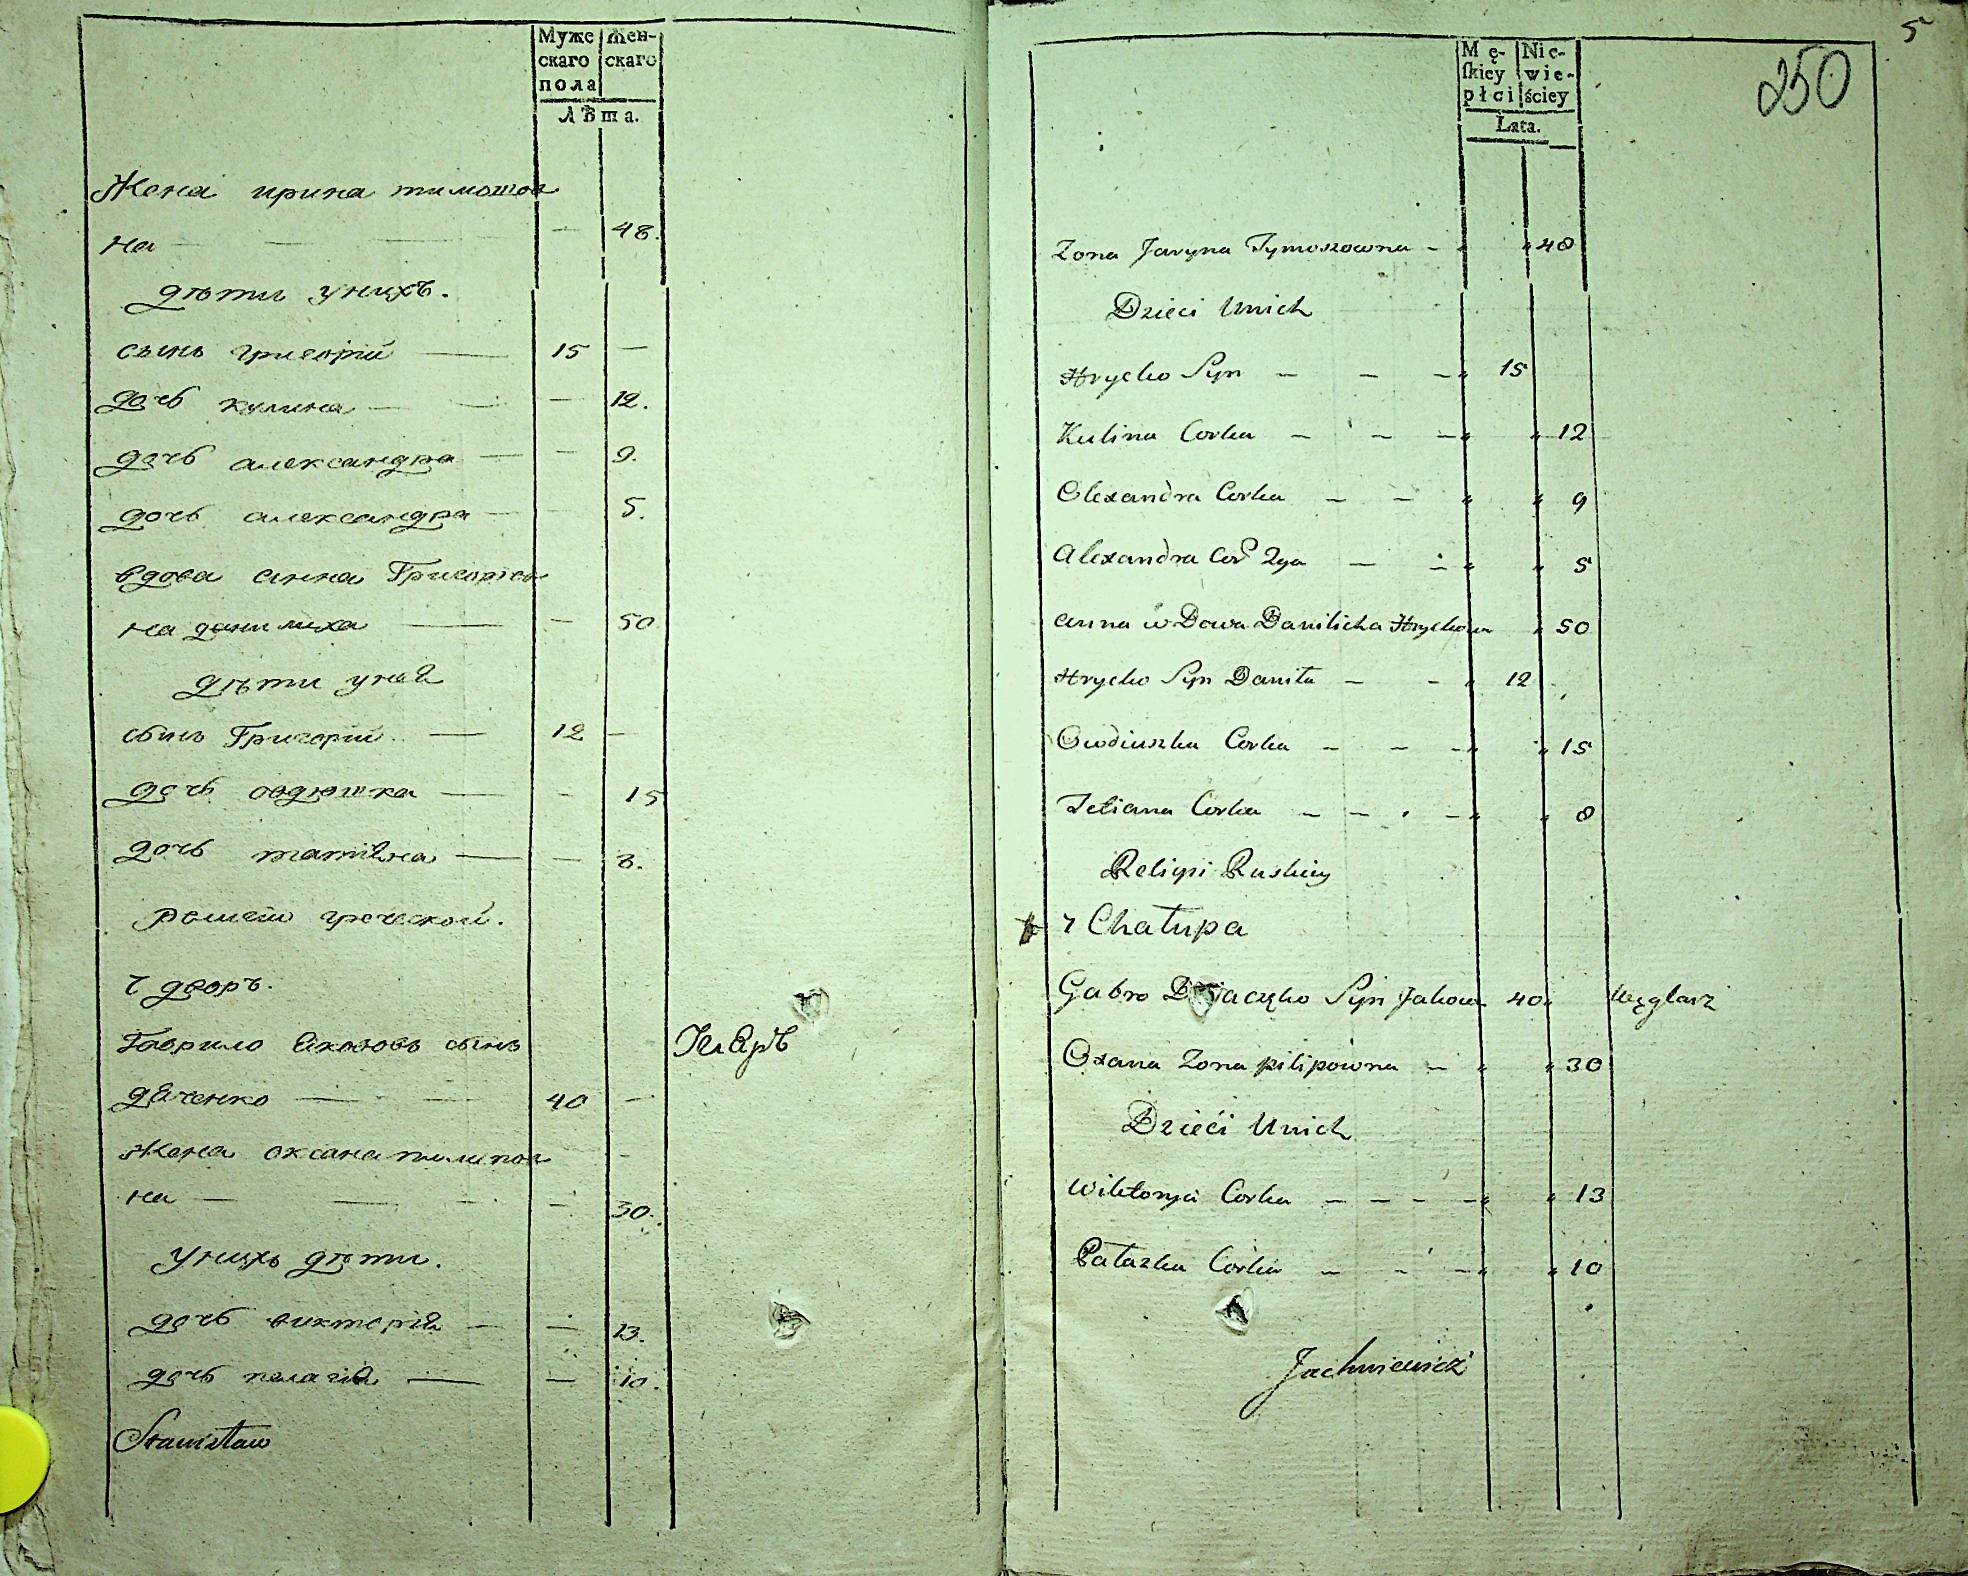 Муже Жен-
скаго скаго
пола
Лѣта.
Жена ирина тимошов
на — — — — 48.
дѣти унихъ.
сынъ григорій — 15 —
дочь кулина — — — 12.
дочь александра — — 9.
дочь александра — — 5.
вдова анна Григоріов
на данилиха — — 50
дѣти уней
сынъ Григорій — 12 —
дочь овдюшка — — 15
дочь татіяна — — 8.
греческой.
7 дворъ.
Гаврило Яковъ сынъ
дяченко — — 40 —
Жена оксана пилипов
на — — — — 30.
унихъ дѣти.
дочь викторія — — 13.
дочь пелагія — — 10.
Stanisław
5
250
Mę- Nie-
ſkiey wie-
płci ściey
Lata.
Zona Jaryna Tymoszowna - " " 48
Dzieci Unich
Hrycko Syn — — — " 15
Kulina Corka — — — " " 12
Olexandra Corka — — " " 9
Alexandra Cor 2ga — — " " 5
anna wDowa Danilicha Hryckowa " 50
Hrycko Syn Daniła — — " 12
Owdiuszka Corka — — — " " 15
Tetiana Corka — — — " " 8
Religii Ruskiey
7 Chałupa
Gabro Syn Jakowa 40 " Węglarz
Oxana Zona pilipowna — " " 30
Dzieći Unich
Wiktorya Corka — — — — " " 13
Pałazka Corka — — — " " 10
Jachniewicz